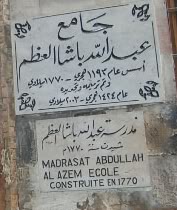 جامع
عبد الله باشا العظم
أسس عام ١١٩٣ هجري - ١٧٧٠ ميلادي
وتم ترميمه وتجديده
عام ١٤٢٤ هجري - ٢٠٠٣ ميلادي
مدرسة عبد الله باشا العظم
شيدت سنة ١٧٧٠م
MADRASAT ABDULLAH
AL AZEM ECOLE
CONSTRUITE EN 1770